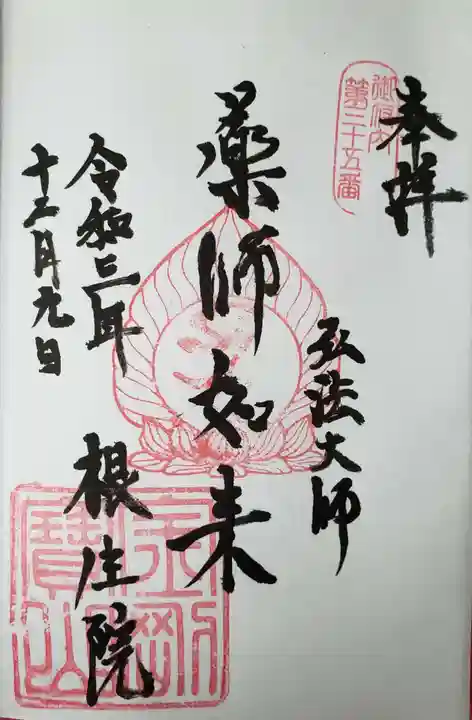 奉拝
御府内
第三十五番
弘法大師
薬師如来
令和三年
十二月九日
根生院